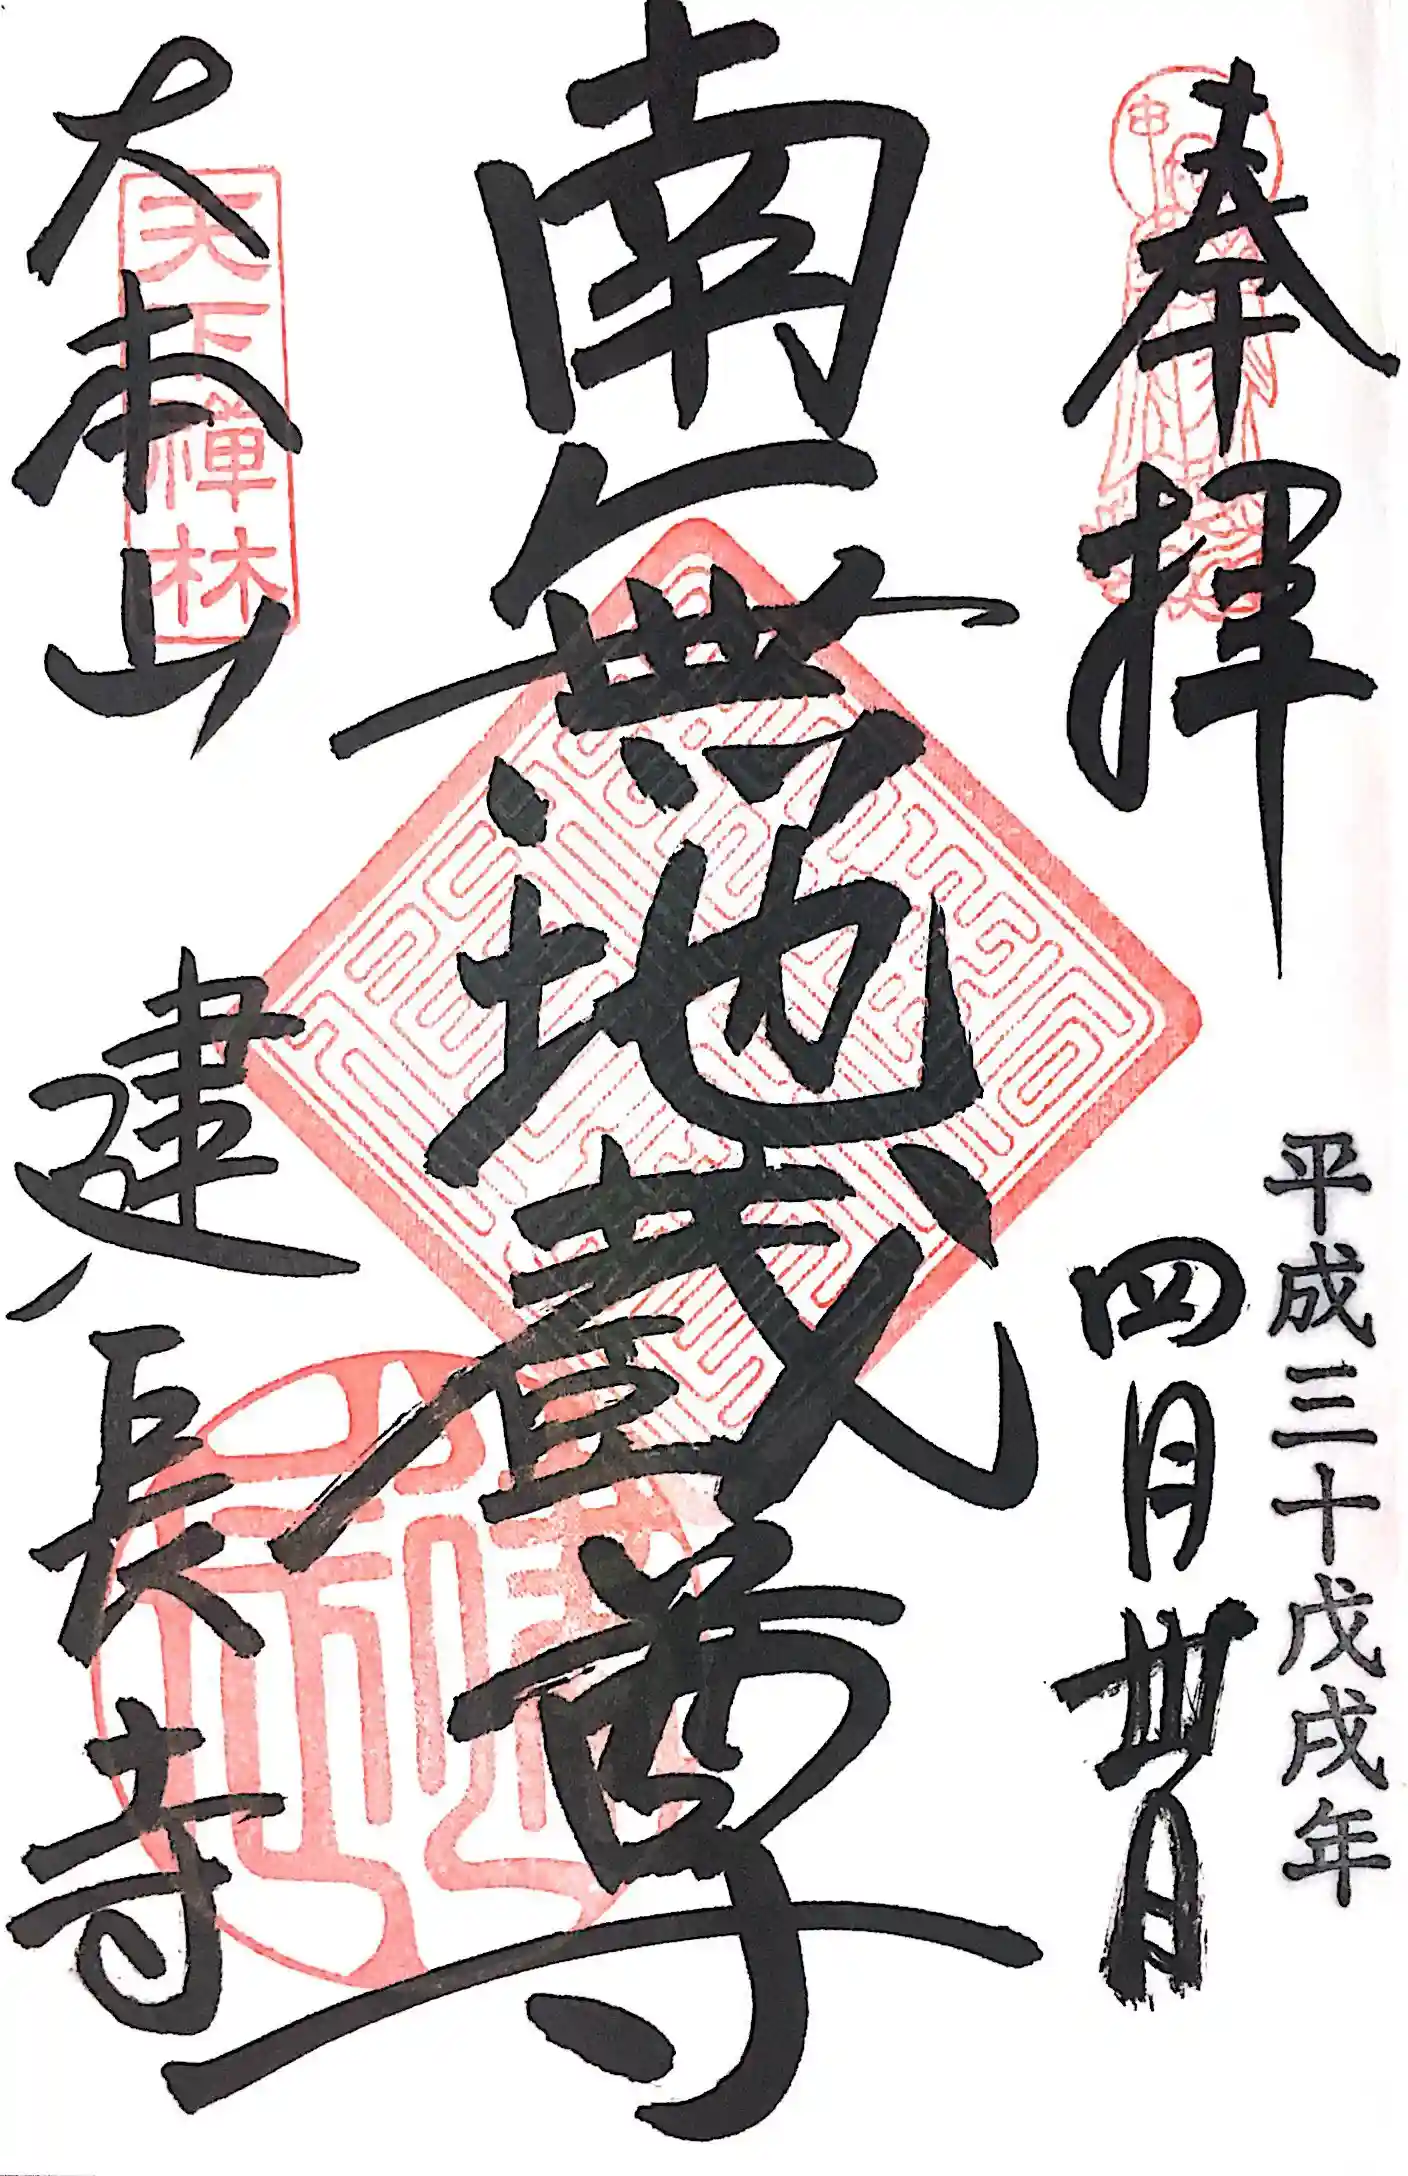 奉拝
平成三十戊戌年
四月卅日
南無地蔵尊
天下禅林
大本山
建長寺